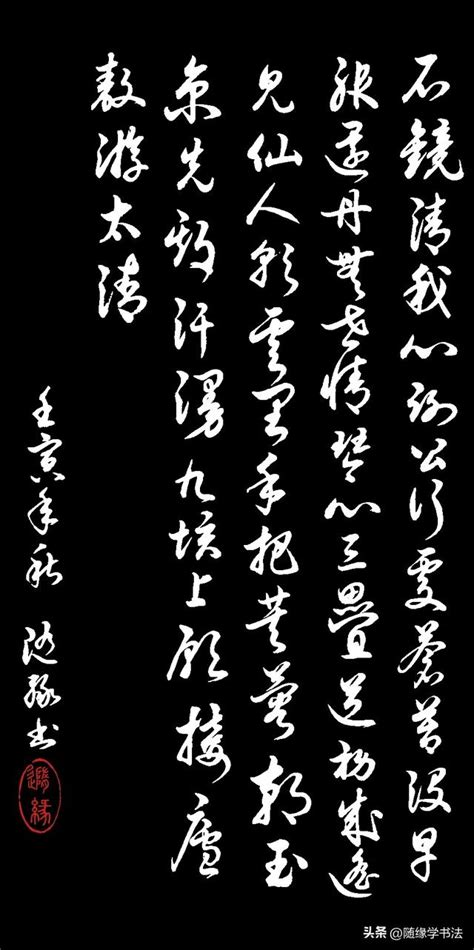 石鏡清我心謝公行處蒼苔没早
服還丹無世情琴心三疊道初成遙
見仙人彩雲里手把芙蓉朝玉
京先期汗漫九垓上願接盧
敖游太清
壬寅年秋 随缘书
随缘
头条 @随缘学书法